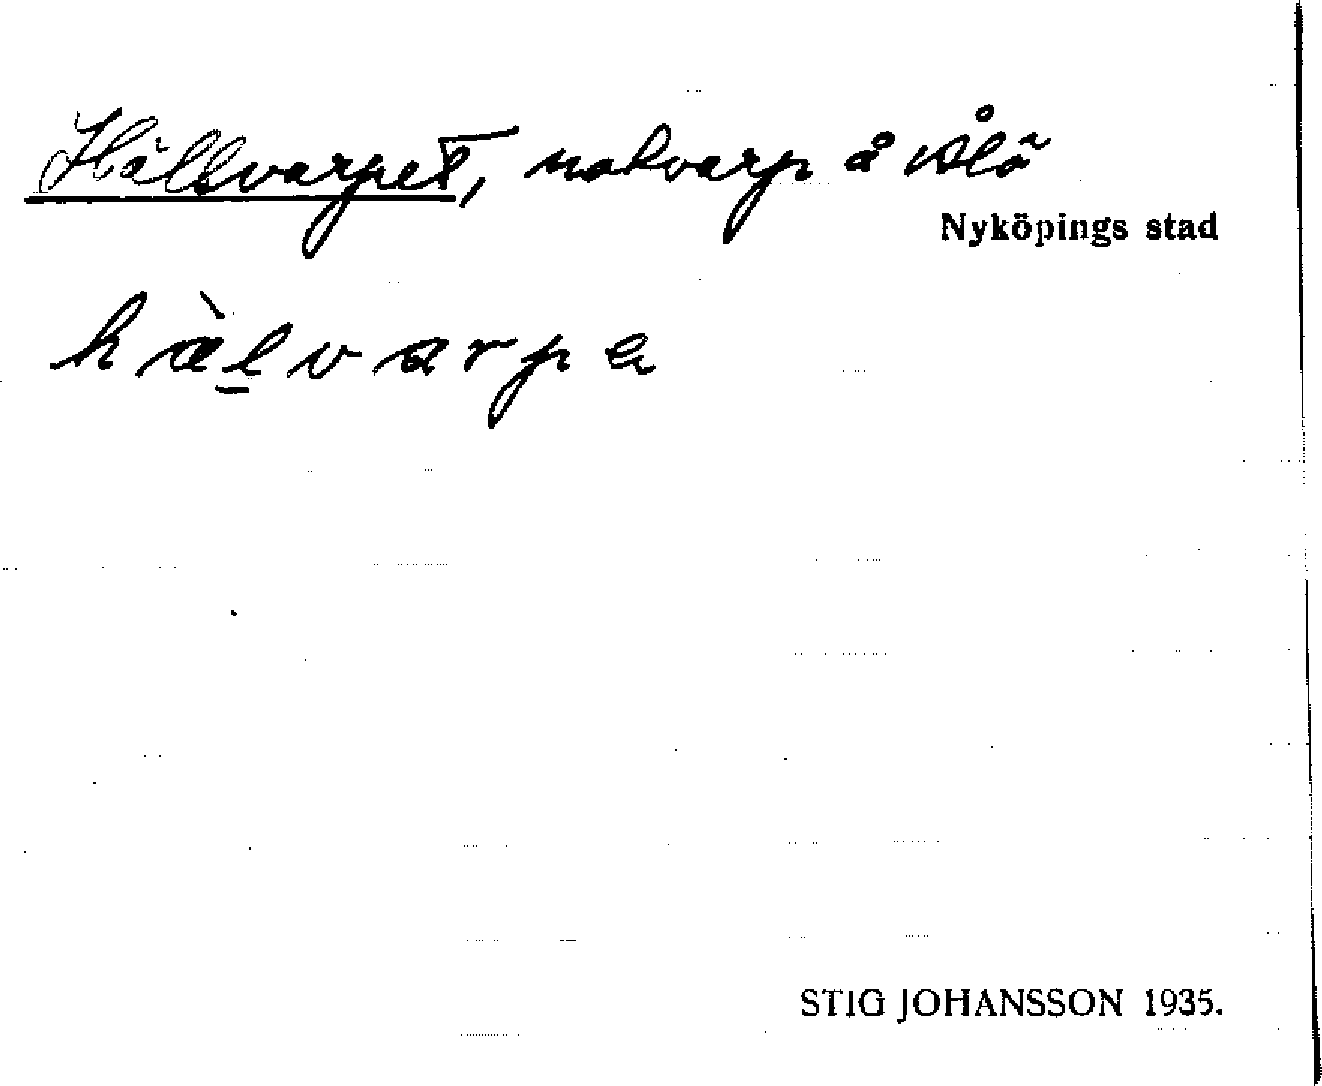 Hällvarpet, notvarp å Ålö
Nyköpings stad
hæ̀l̲varpa
STIG JOHANSSON 1935.